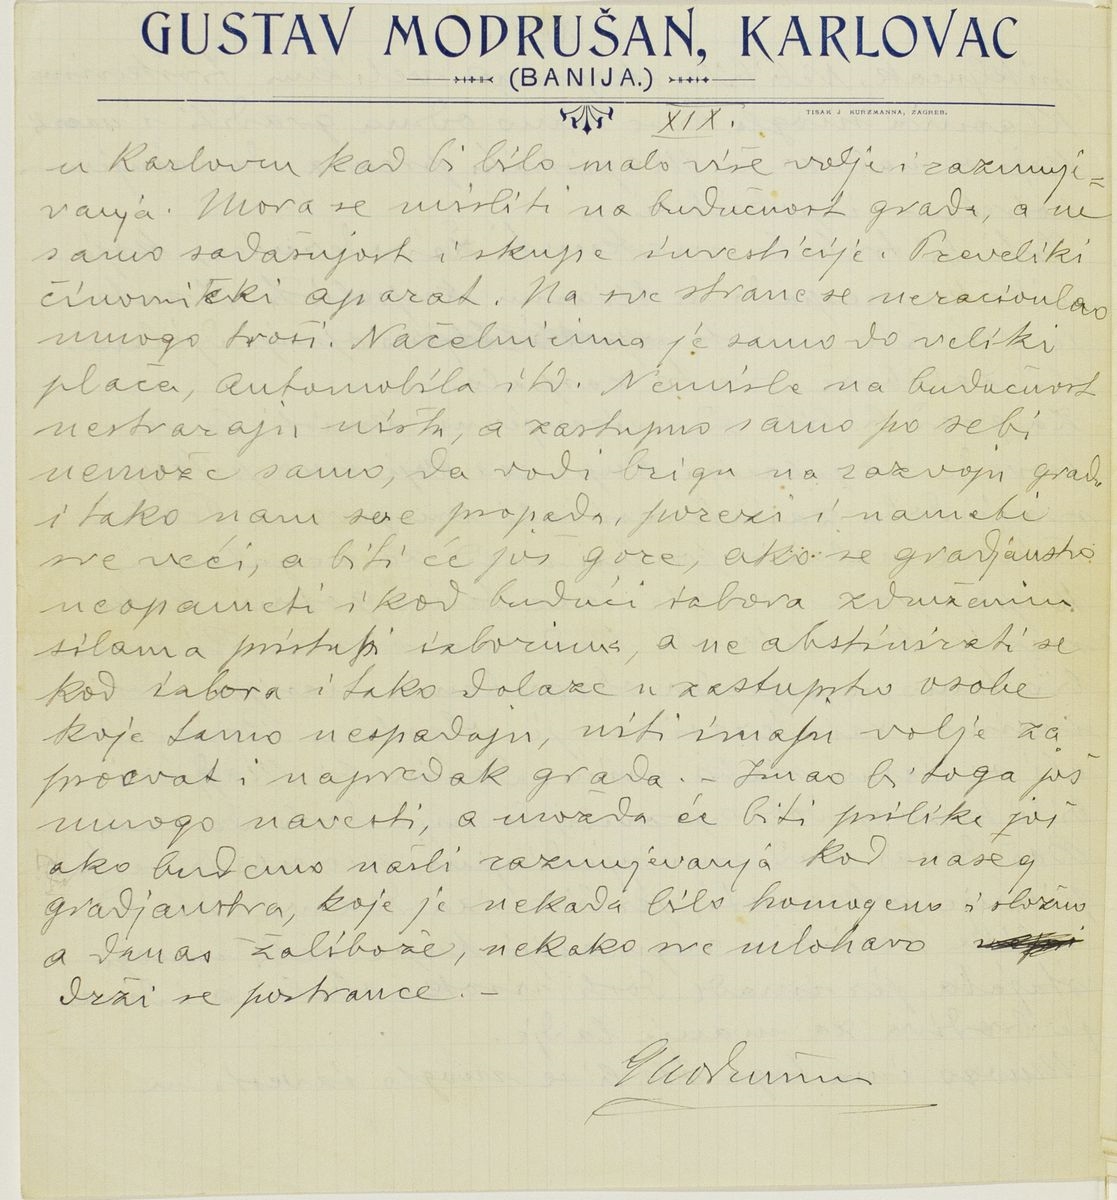 GUSTAV MODRUŠAN, KARLOVAC
(BANIJA.)
TISAK J KURZMANNA, ZAGREB.
XIX.
u Karlovcu kad bi bilo malo više volje i razumje=
vanja. Mora se misliti na budučnost grada, a ne
samo sadašnjost i skupe investicije. Preveliki
činovnički aparat. Na sve strane se neracionlno
mnogo troši. Načelnicima je samo do veliki
plača, automobila itd. Nemisle na budučnost
nestvaraju ništa, a zastupno samo po sebi
nemože samo, da vodi brigu na razvoju grada
i tako nam sve propada, porezi i nameti
sve veći, a biti će još gore, ako se gradjanstvo
neopameti i kod budući izbora združenim
silama pristupi izborima, a ne abstinirati se
kod izbora i tako dolaze u zastupstvo osobe
koje tamo nespadaju, niti imaju volje za
procvat i napredak grada. – Imao bi toga još
mnogo navesti, a možda će biti prilike još
ako budemo našli razumjevanja kod našeg
gradjanstva, koje je nekada bilo homogeno i složno
a danas žalibože, nekako sve mlohavo
drži se postrance. –
GModrušan